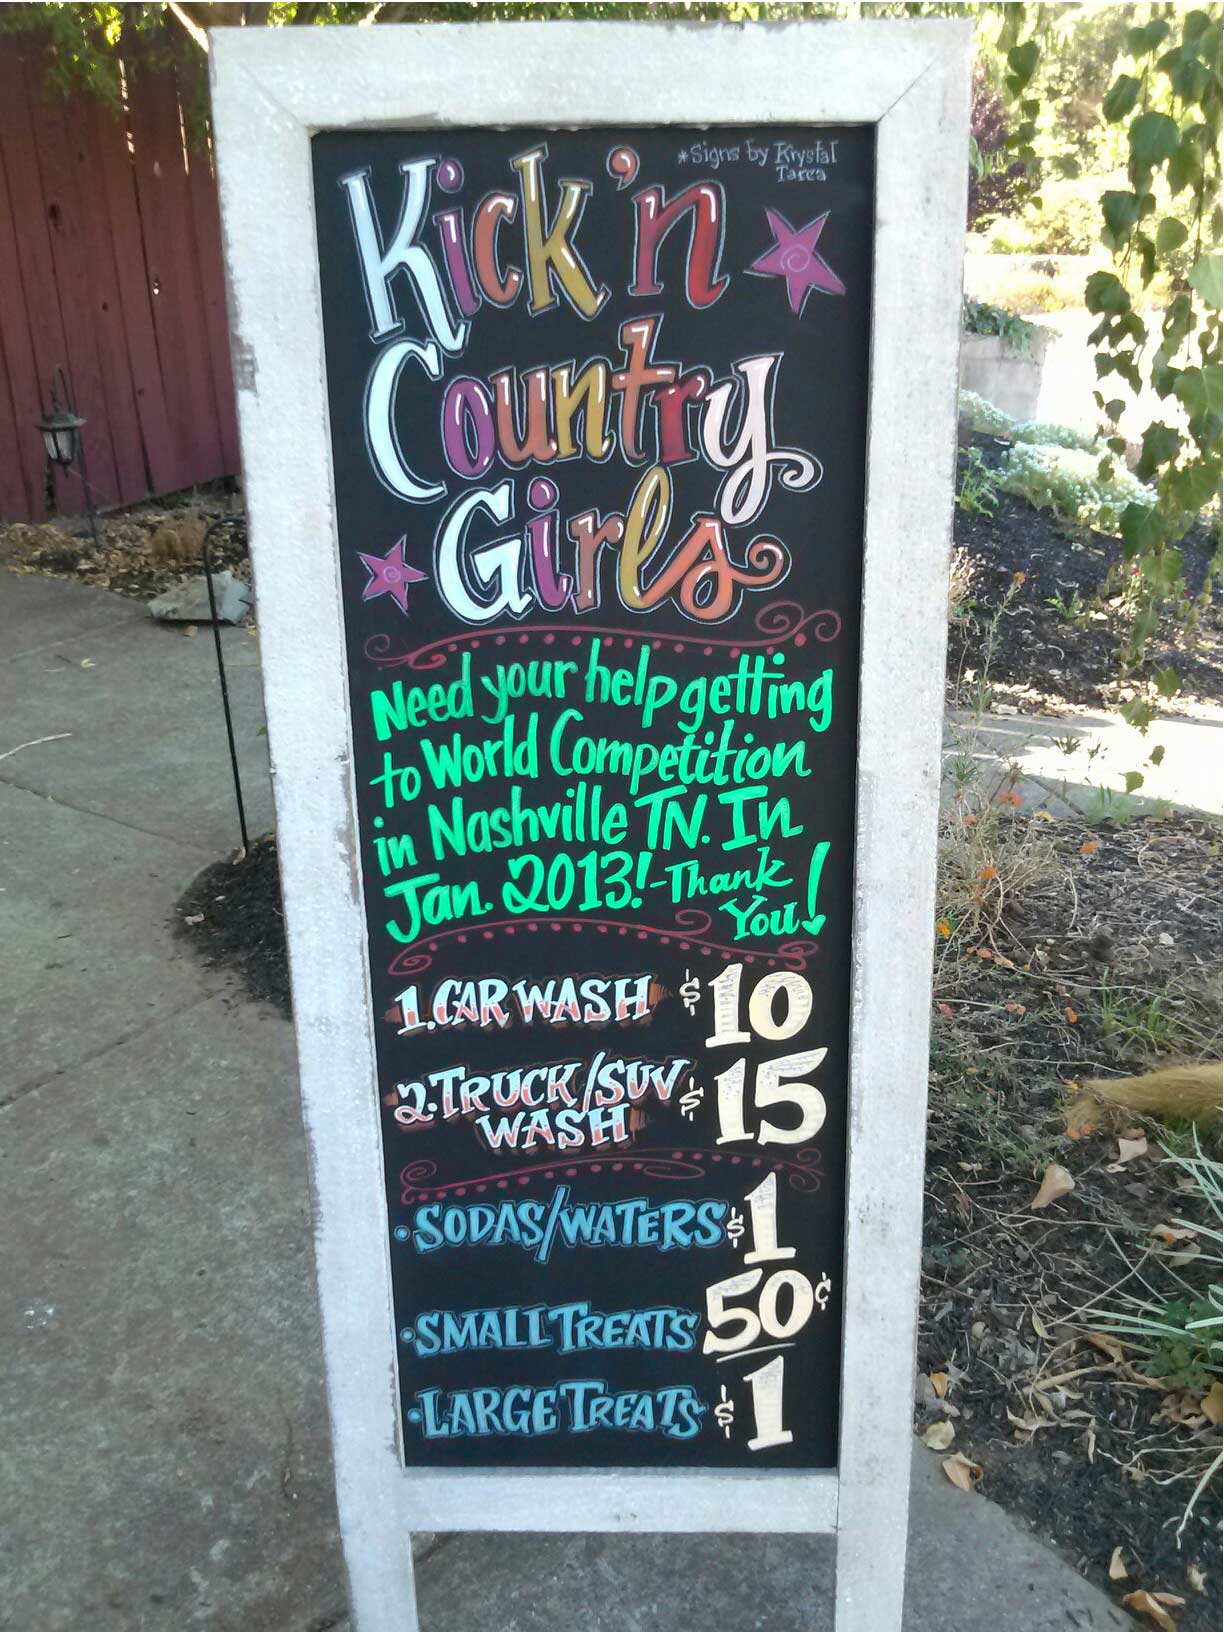 *Signs by Krystal
Tarca
Kick'n
Country
Girls
Need your help getting
to World Competition
in Nashville TN. In
Jan. 2013! - Thank
You!
1. CAR WASH $10
2. TRUCK/SUV $15
WASH
• SODAS/WATERS $1
• SMALL TREATS 50¢
• LARGE TREATS $1